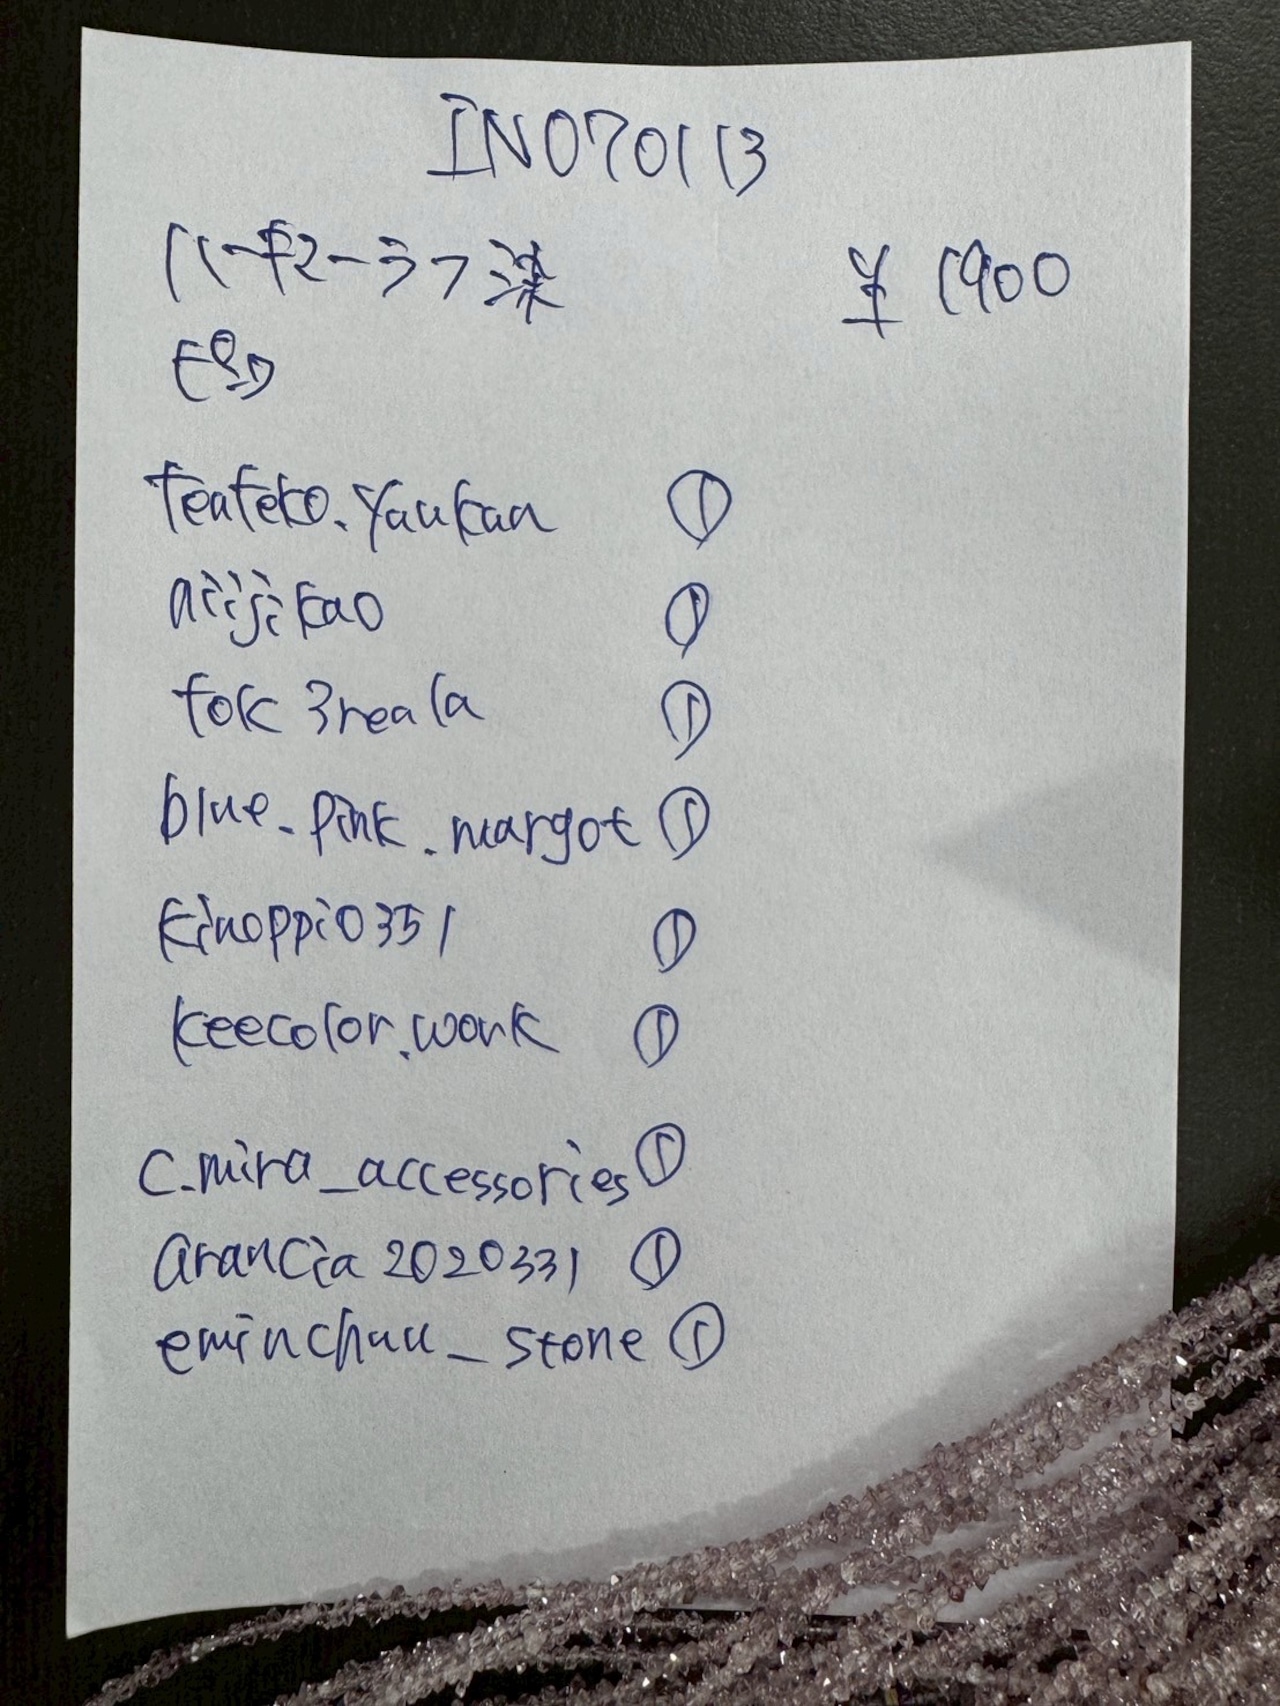 IN070113
ハーキマーラフ染 ¥1900
teateko.yaukaa
aiijikao
fok3reala
blue_pink.margot ①
kinoppio351 ①
keecolor.work ①
c.mira_accessories ①
arancia2020331 ①
eminchuu_stone ①